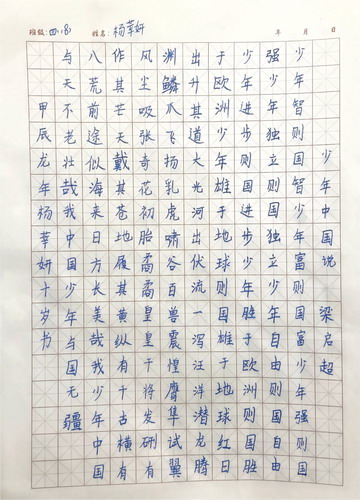 班级:四(8) 姓名:杨莘妍 年 月 日
少年中国说 梁启超
少年智则国智少年富则国富少年强则国
强少年独立则国独立少年自由则国自由
少年进步则国进步少年胜于欧洲则国胜
于欧洲少年雄于地球则国雄于地球红日
出升其道大光河出伏流一泻汪洋潜龙腾
渊鳞爪飞扬乳虎啸谷百兽震惶鹰隼试翼
风尘吸张奇花初胎矞矞皇皇干将发硎有
作其芒天戴其苍地履其黄纵有千古横有
八荒前途似海来日方长美哉我少年中国
与天不老壮哉我中国少年与国无疆
甲辰龙年杨莘妍十岁书